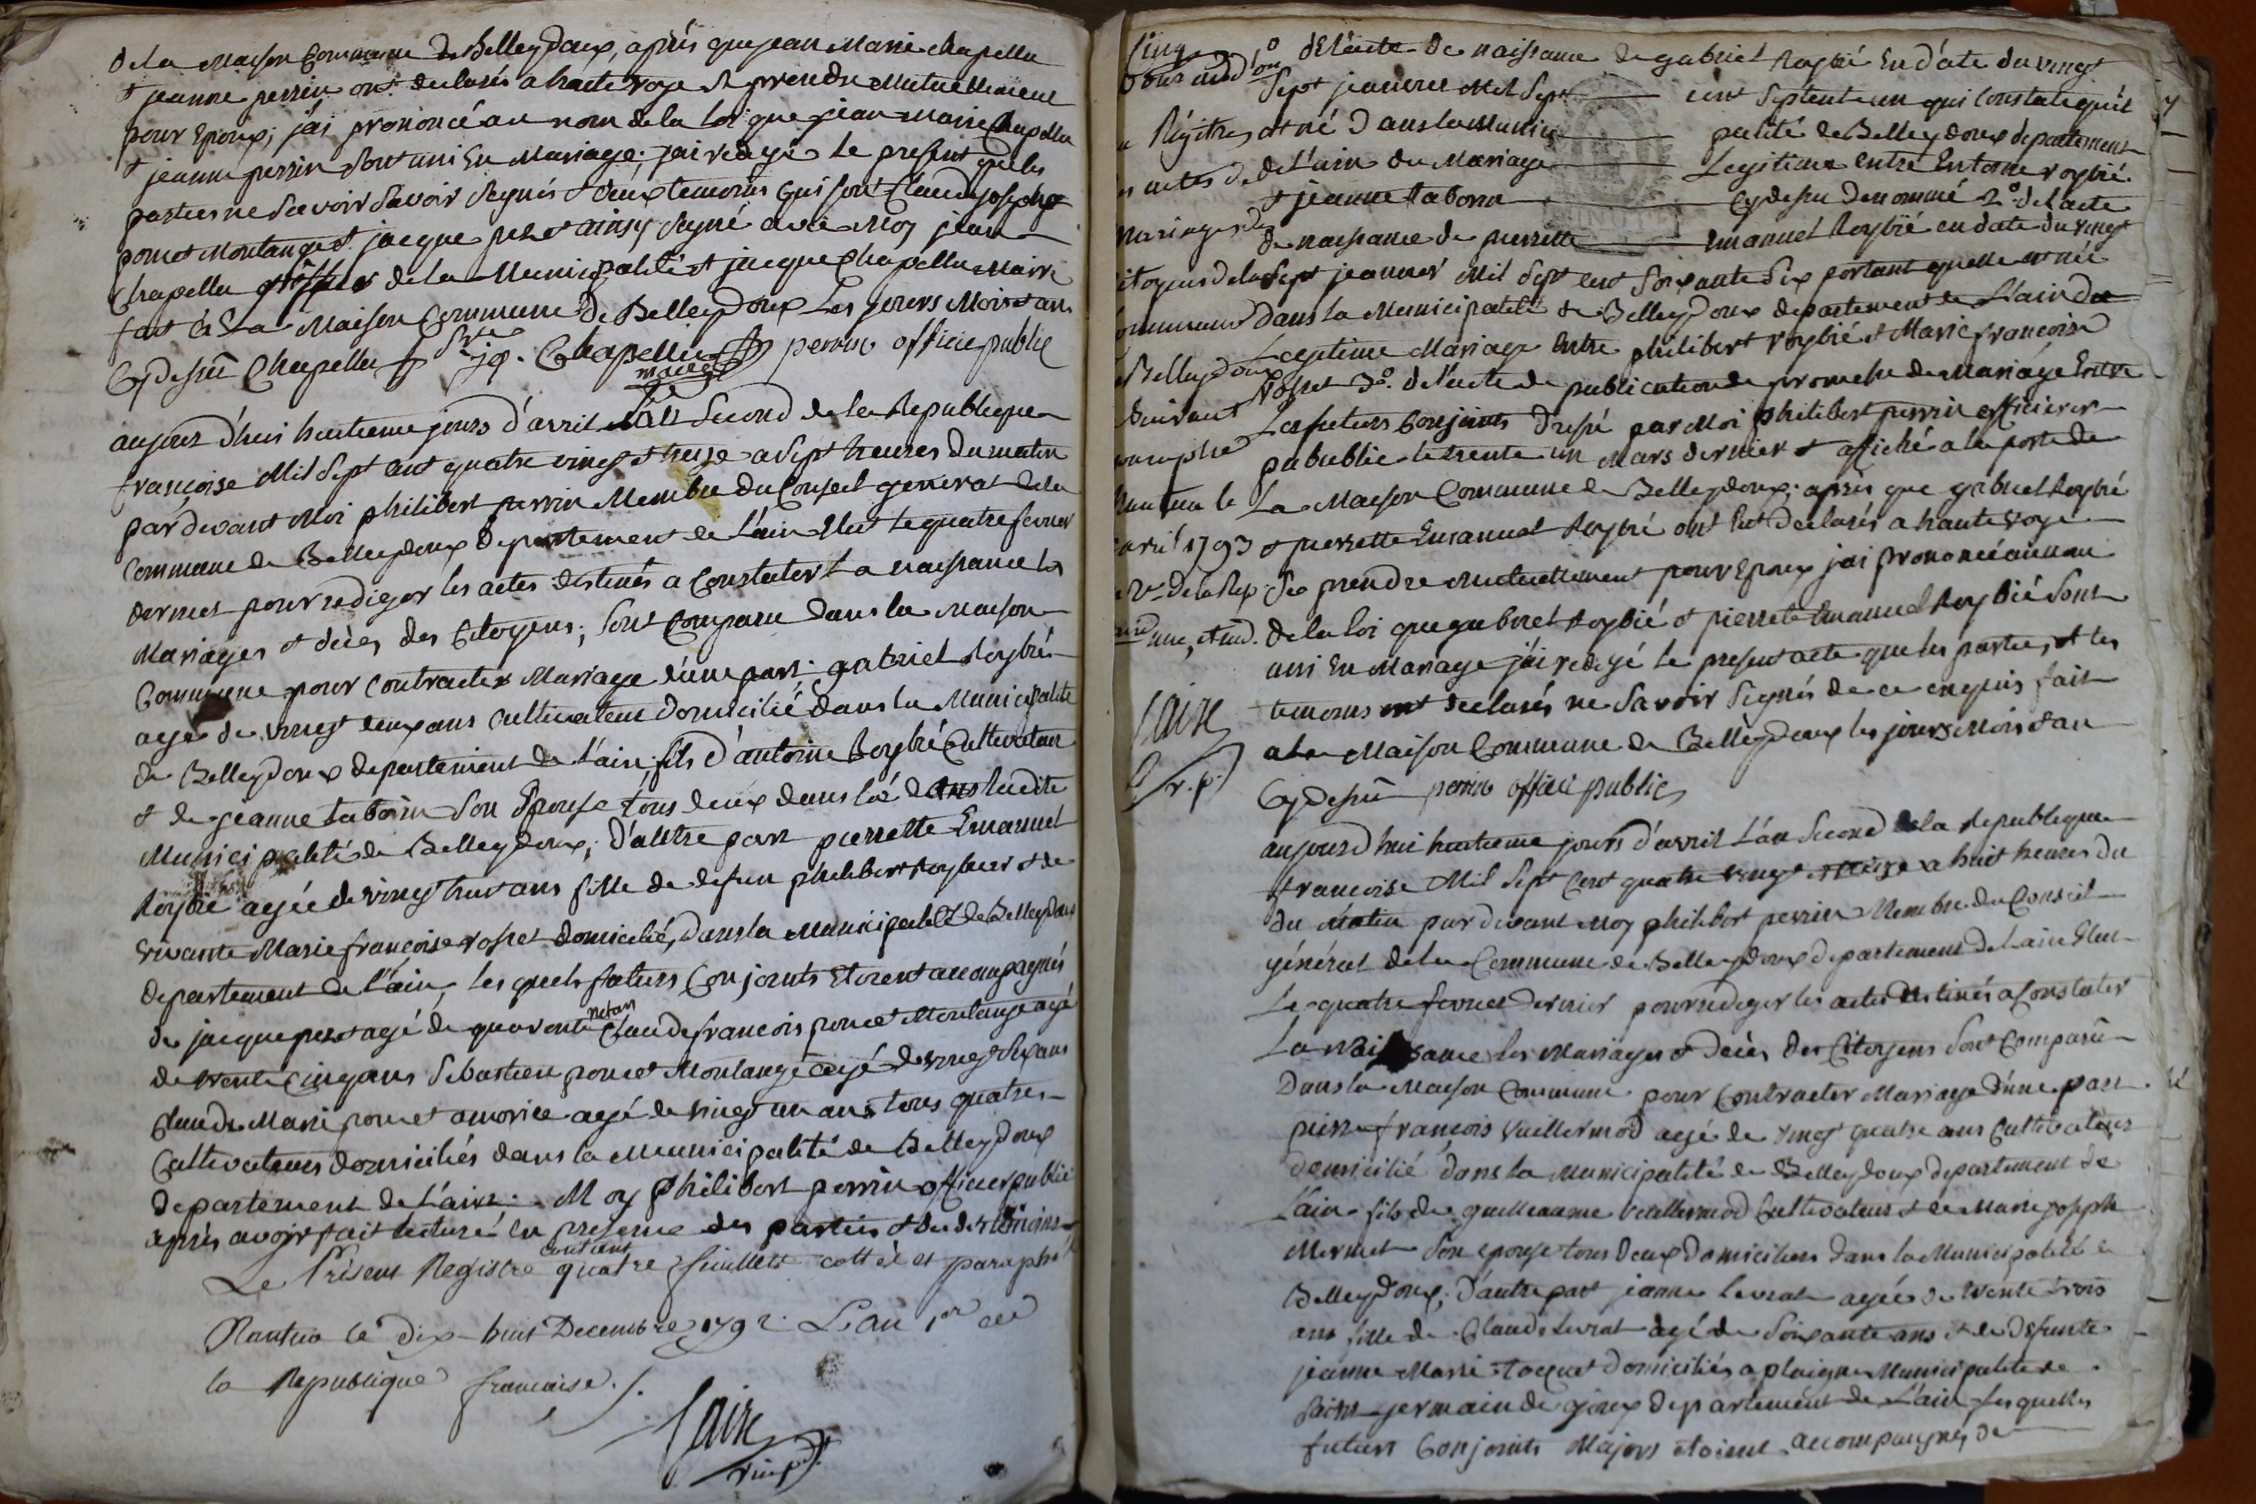 de la Maison Commune de Belleydoux, aprés que jean Marie chapellu
et jeanne perrin ont declarés a haute voye se prendre Mutuellement
pour Epoux; j'ai prononcé au nom de la loi que jean Marie Chapellu
et jeanne perrin sont uni En Mariage; j'ai redigé le present que les
parties ne Savoir Savoir Signés et deux temoins qui sont Claude joseph
poncet Montange et jacque perret ainsy signé avec Moy jean
Chapellu greffier de la Municipalité et jacque Chapellu Maire
fait à la Maison Commune de Belleydoux Les jours Mois et an
Cy dessû Chapellu Sre jq. Chapellu maire perrin officie public
aujour d'hui huitieme jours d'avril l'an Second de la Republique
françoise Mil Sept cent quatre vingt et treize a Sept heures du matin
par devant Moi philibert perrin Membre du Conseil general de la
Commune de Belleydoux departement de l'ain Elut le quatre fevrier
dernier pour rediger les actes destinés a Constater la naissance les
Mariages et décès des Citoyens; sont Comparu dans la Maison
Commune pour contracter Mariage d'une part; gabriel Roybié
agé de vingt deux ans Cultivateur domicilié dans la Municipalité
de Belleydoux departement de l'ain; fils d'antoine Roybié Cultivateur
et de jeanne taborin son Epouse tous deux dans la ditte
Municipalité de Belleydoux; d'autre part pierrette Emanuel
Roybié agée de vingt huit ans fille de defun philibert Roybier et de
vivante Marie françoise rosset domicilié, dans la Municipalité de Belleydoux
departement de l'ain, les quels futurs Conjoints Etoient accompagnés
de jacque perret agé de quarente nefan Claude francois poncet Montange agé
de trente Cinq ans Sebastien poncet Montange agé de vingt Six ans
Claude Marie poncet amorice agé de vingt un ans tous quatre
Cultivateurs domiciliés dans la Municipalité de Belleydoux
departement de L'ain; Moy philibert perrin officier public
après avoir fait lecture en presence des parties et des dit temoins
Le Présent Registre contient quatre feuillets cotté et paraphé
Nantua le dix-huit Decembre 1792. L'an 1er de
la Republique francaise ./.
Laire
vice pt
Cinq
Pour
Régitre
actes de
mariages des
citoyens de la
commune
Belleydoux
Suivant
paraphé
Nantua le
avril 1793
2e de la Rep.
Laire
v. p.
de l'acte de naissance de gabriel Roybié En date du vingt
Sept jeanvier Mil Sept cent Septente un qui Constate qu'il
est né Dans la Municipalité de Belleydoux departement
de L'ain du Mariage Legitime entre Entoine roybié
et jeanne taborin Cy dessu denommé 2º. de l'acte
de naissance de pierrette Emanuel Roybié en date du vingt
Sept jeanvier Mil Sept cent Soixante Six portant quelle est née
dans la Municipalité de Belleydoux departement de L'ain du
Legitime Mariage Entre philibert roybié et Marie françoise
Rosset 3º. de l'acte de publication de promesse de Mariage Entre
Les futurs Conjoints dressé par Moi philibert perrin officier
publie le trente un Mars dernier et affiché a la porte de
La Maison Commune de Belleydoux; aprés que gabriel Roybié
et pierrette Emanuel Roybié ont declarés a haute voye
Se prendre Mutuellement pour Epoux jai prononcé au nom
de la loi que gabriel Roybié et pierrete Emanuel Roybié Sont
uni En Mariage j'ai redigé le present acte que les parties, et les
temoins ont declarés ne Savoir Signés de ce enquis fait
a la Maison Commune de Belleydoux les jours Mois et an
Cy dessû perrin officié public
aujourd huit huitieme jours d'avril L'an Second de la Republique
francoise Mil Sept Cent quatre vingt et treize a huit heures du
du matin par devant Moy philibert perrin Membre du Conseil
général de la Commune de Belleydoux departement de L'ain Elut
Le quatre fevrier dernier pour rediger les actes destinés a Constater
La naissance Les Mariages et décès des Citoyens Sont Comparû
Dans la Maison Commune pour Contracter Mariage d'une part
pierre françois Vuillermod agé de vingt quatre ans Cultivateur
domicilié dans la Municipalité de Belleydoux departement de
l'ain fils de guilleaume Vuillermod Cultivateur et de Marie joseph
Mermet Son epouse tous deux domiciliers dans la Municipalité de
Belleydoux; d'autre part jeanne levrat agée de trente trois
ans fille de Claude levrat agé de soixante ans et de defunte
jeanne Marie tocquet domiciliés a plaigne Municipalité de
Saint germain de joux departement de L'ain les quelles
futurs Conjoints Majors etoient accompangnés de